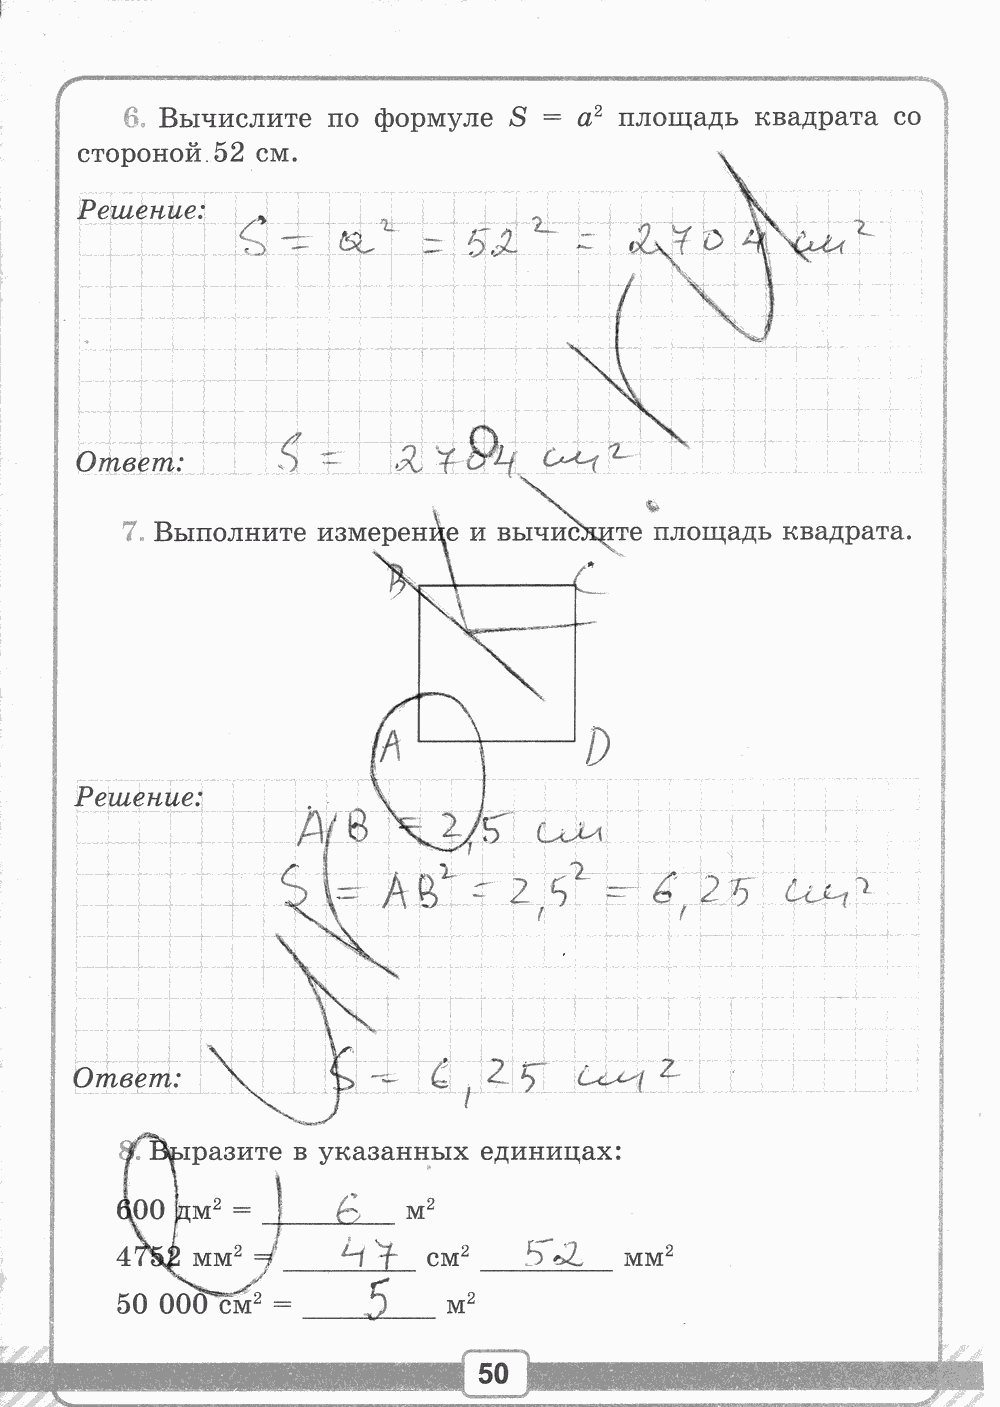 6. Вычислите по формуле S = a² площадь квадрата со
стороной 52 см.
Решение:
S = a² = 52² = 2704 см²
Ответ: S = 2704 см²
7. Выполните измерение и вычислите площадь квадрата.
B C
A D
Решение:
AB = 2,5 см
S = AB² = 2,5² = 6,25 см²
Ответ: S = 6,25 см²
8. Выразите в указанных единицах:
600 дм² = 6 м²
4752 мм² = 47 см² 52 мм²
50 000 см² = 5 м²
50